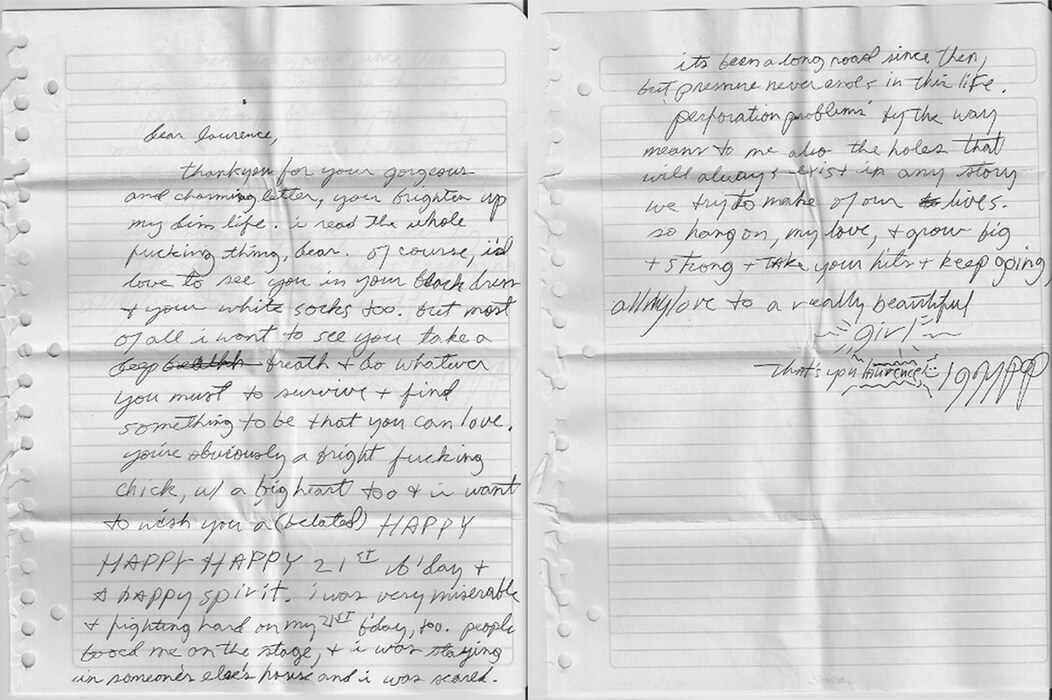 dear laurence,
thankyou for your gorgeous
and charming letter, you brighten up
my dim life. i read the whole
fucking thing, dear. of course, i'd
love to see you in your black dress
& your white socks too. but most
of all i want to see you take a
deep breath & do whatever
you must to survive & find
something to be that you can love.
you're obviously a bright fucking
chick, w/ a big heart too & i want
to wish you a (belated) HAPPY
HAPPY HAPPY 21ST b'day &
a happy spirit. i was very miserable
& fighting hard on my 21ST b'day, too. people
booed me on the stage, & i was staying
in someone else's house and i was scared.
its been a long road since then,
but pressure never ends in this life.
'perforation problems' by the way
means to me also the holes that
will always exist in any story
we try to make of our lives.
so hang on, my love, & grow big
& strong & take your hits & keep going
all my love to a really beautiful
girl
that's you laurence iggy pop